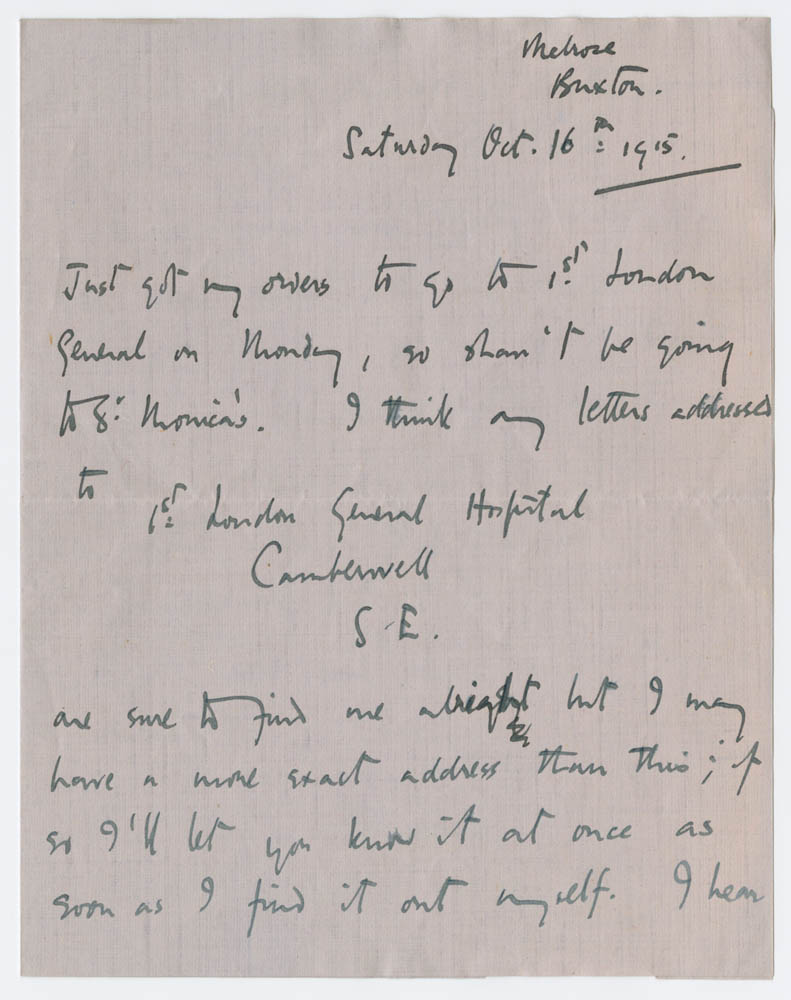 Melrose
Buxton.
Saturday Oct. 16th 1915.
Just got my orders to go to 1st London
General on Monday, so shan't be going
to St Monica's. I think any letters addressed
to
1st London General Hospital
Camberwell
S.E.
are sure to find me alright but I may
have a more exact address than this; if
so I'll let you know it at once as
soon as I find it out myself. I hear